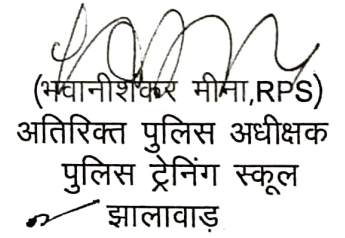 (भवानीशंकर मीना,RPS)
अतिरिक्त पुलिस अधीक्षक
पुलिस ट्रेनिंग स्कूल
झालावाड़